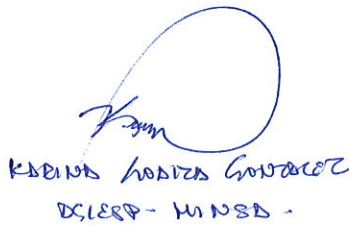 KARINA LOAIZA GONZALEZ
DGIESP - MINSA -